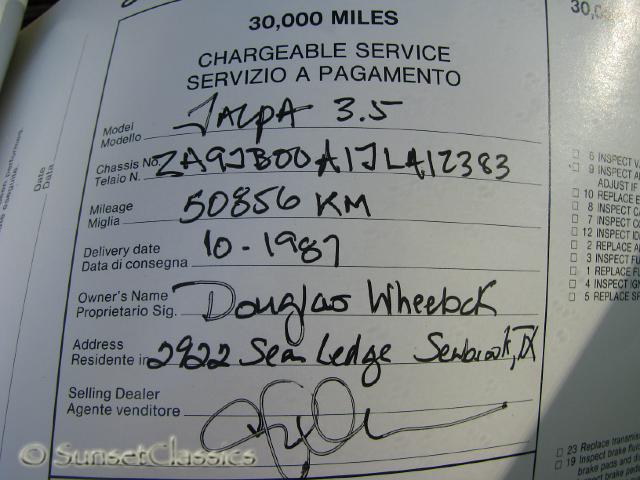 30,000 MILES
CHARGEABLE SERVICE
SERVIZIO A PAGAMENTO
Model
Modello
JALPA 3.5
Chassis No.
Telaio N.
ZA9JB00A1JLA12383
Mileage
Miglia
50856 KM
Delivery date
Data di consegna
10-1987
Owner's Name
Proprietario Sig.
Douglas Wheelock
Address
Residente in
2922 Sea Ledge Seabrook, TX
Selling Dealer
Agente venditore
Date
Data
6 INSPECT
9 INSPECT
ADJUST
10 REPLACE
8 INSPECT
7 INSPECT
12 INSPECT
2 REPLACE
3 INSPECT
1 REPLACE
4 INSPECT
5 REPLACE
23 Replace
19 Inspect brake
brake pads and
Inspect
brake
© SunsetClassics